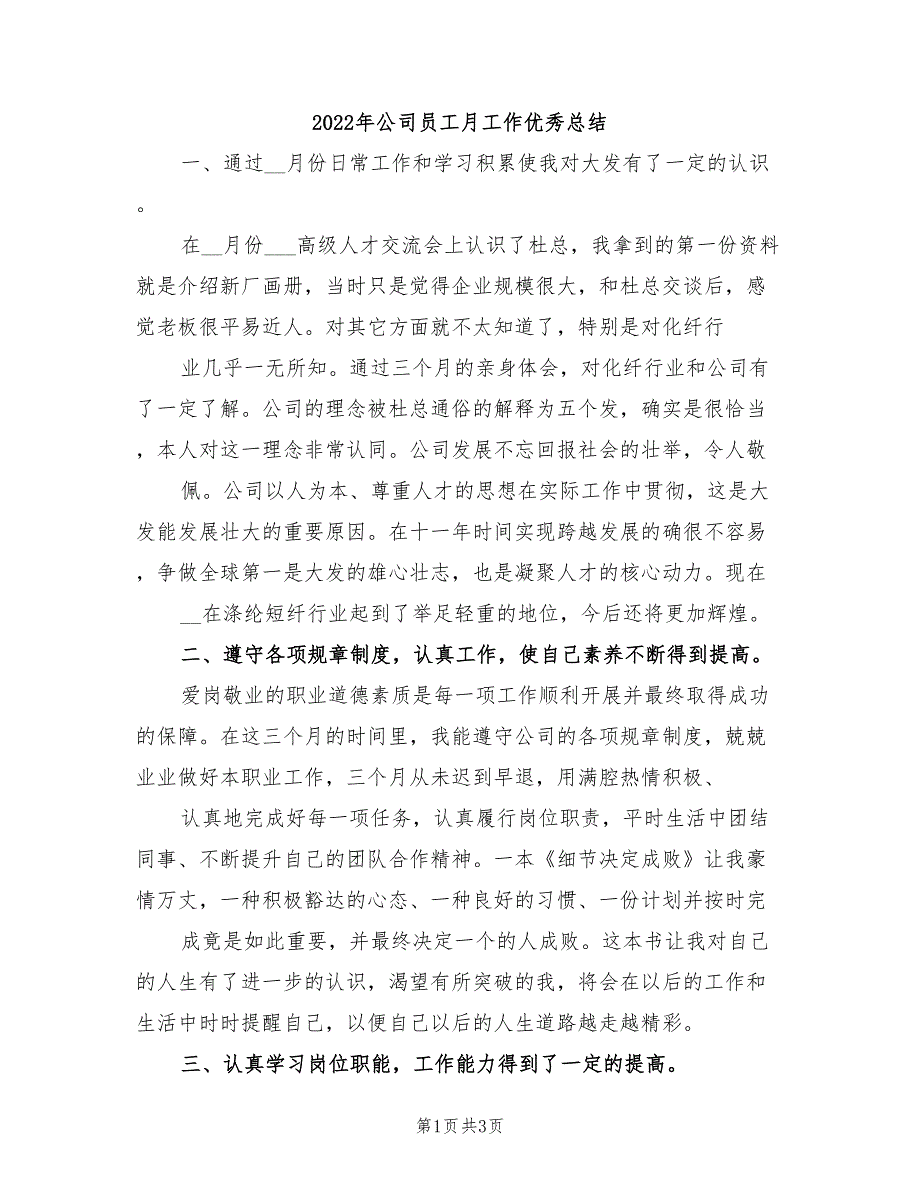 2022年公司员工月工作优秀总结
一、通过__月份日常工作和学习积累使我对大发有了一定的认识
。
在__月份___高级人才交流会上认识了杜总，我拿到的第一份资料
就是介绍新厂画册，当时只是觉得企业规模很大，和杜总交谈后，感
觉老板很平易近人。对其它方面就不太知道了，特别是对化纤行
业几乎一无所知。通过三个月的亲身体会，对化纤行业和公司有
了一定了解。公司的理念被杜总通俗的解释为五个发，确实是很恰当
，本人对这一理念非常认同。公司发展不忘回报社会的壮举，令人敬
佩。公司以人为本、尊重人才的思想在实际工作中贯彻，这是大
发能发展壮大的重要原因。在十一年时间实现跨越发展的确很不容易
，争做全球第一是大发的雄心壮志，也是凝聚人才的核心动力。现在
__在涤纶短纤行业起到了举足轻重的地位，今后还将更加辉煌。
二、遵守各项规章制度，认真工作，使自己素养不断得到提高。
爱岗敬业的职业道德素质是每一项工作顺利开展并最终取得成功
的保障。在这三个月的时间里，我能遵守公司的各项规章制度，兢兢
业业做好本职业工作，三个月从未迟到早退，用满腔热情积极、
认真地完成好每一项任务，认真履行岗位职责，平时生活中团结
同事、不断提升自己的团队合作精神。一本《细节决定成败》让我豪
情万丈，一种积极豁达的心态、一种良好的习惯、一份计划并按时完
成竟是如此重要，并最终决定一个的人成败。这本书让我对自己
的人生有了进一步的认识，渴望有所突破的我，将会在以后的工作和
生活中时时提醒自己，以便自己以后的人生道路越走越精彩。
三、认真学习岗位职能，工作能力得到了一定的提高。
第1页共3页